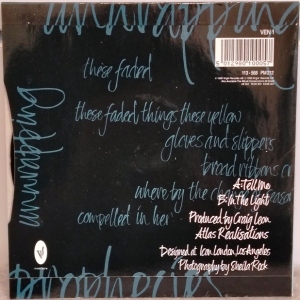 unwrapping
VEN 1
5 012980 100057
113·568 PM 212
these faded
these faded things these yellow
gloves and slippers
broad ribbons or
where by the
compelled in her
A: Tell Me
B: In the Light
Produced by Craig Leon
Atlas Realisations
Designed at Icon, London, Los Angeles
Photography by Sheila Rock
prophecies